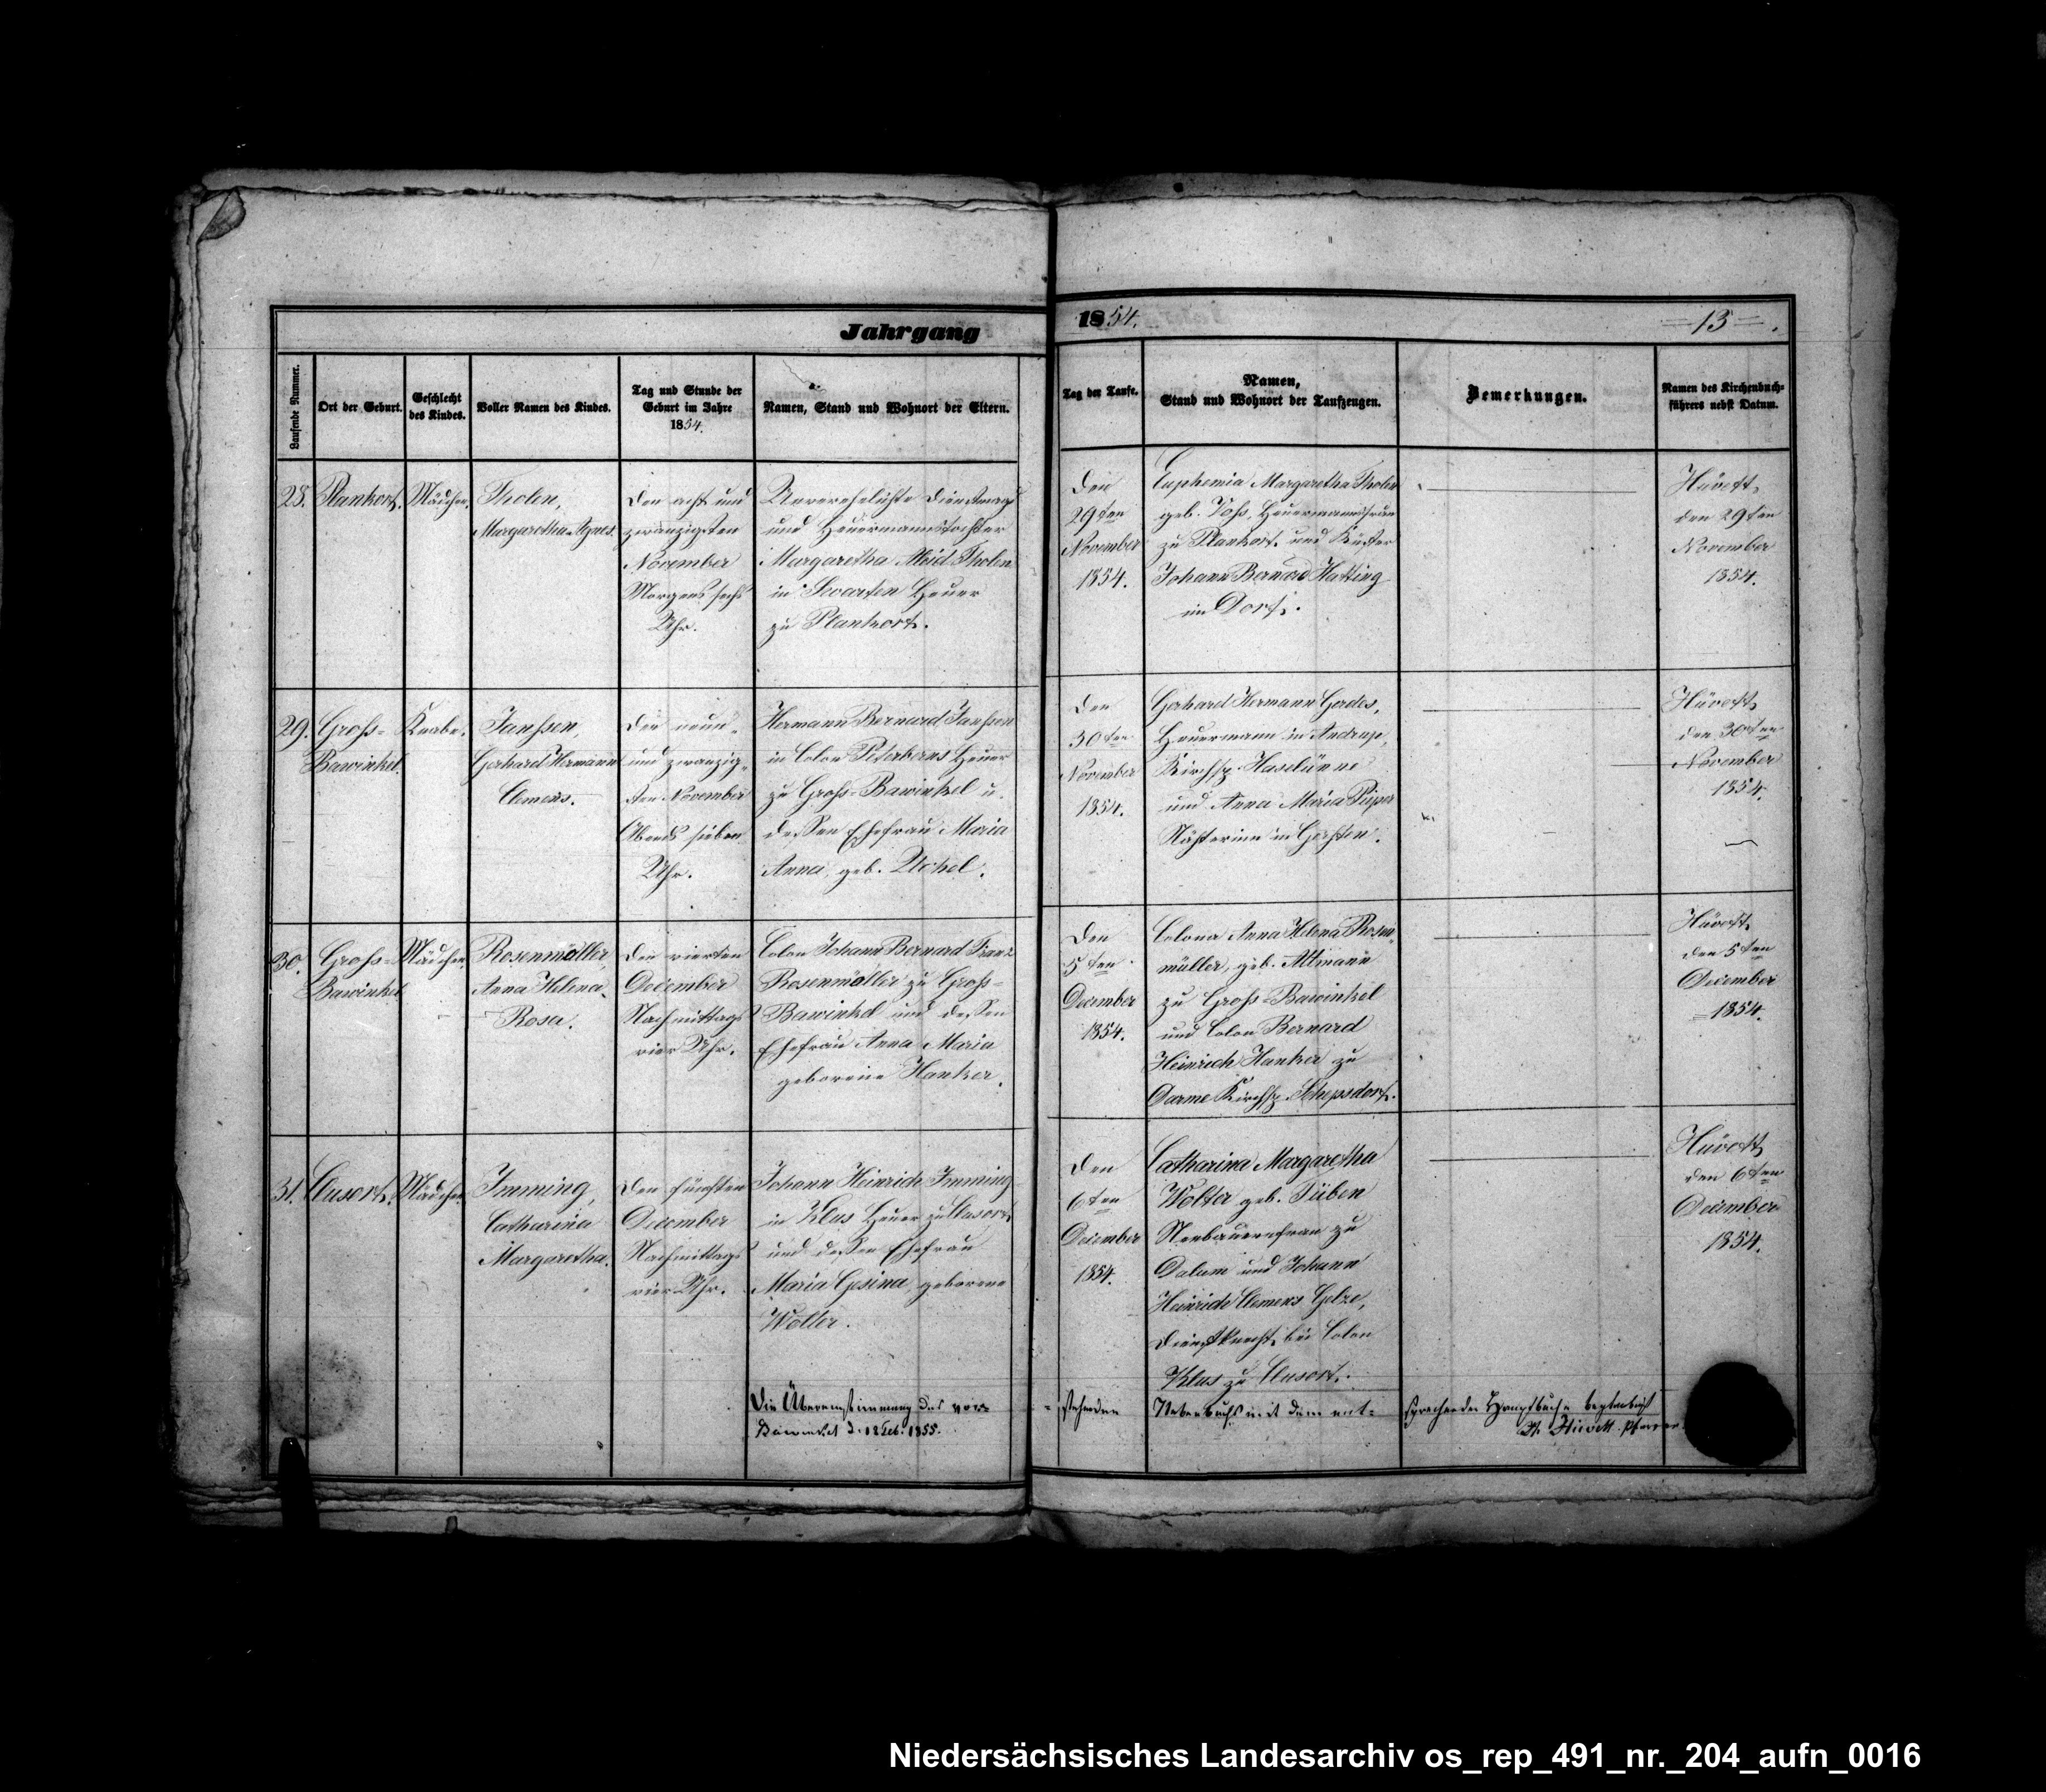 Jahrgang
1854.
=13=.
Laufende Nummer.
Ort der Geburt.
Geschlecht
des Kindes.
Voller Namen des Kindes.
Tag und Stunde der
Geburt im Jahre
1854.
Namen, Stand und Wohnort der Eltern.
Tag der Taufe.
Namen,
Stand und Wohnort der Taufzeugen.
Bemerkungen.
Namen des Kirchenbuch-
führers nebst Datum.
28.
Plankort.
Mädchen.
Tholen,
Margaretha Agnes.
Den acht und
zwanzigsten
November
Morgens sechs
Uhr.
Unverehelichte Dienstmagd
und Heuermannstochter
Margaretha Aleid Tholen
in Heuer
zu Plankort.
Den
29ten
November
1854.
Euphemia Margaretha Tholen
geb. Voß, Heuermannsfrau
zu Plankort und Küster
Johann Bernard Hatting
im Dorf.
Hüvett,
den 29ten
November
1854.
29.
Groß-
Bawinkel.
Knabe.
Janßen,
Gerhard Hermann
Clemens.
Den neun-
und zwanzig-
sten November
Abends sieben
Uhr.
Hermann Bernard Janßen
in Colon Heuer
zu Groß-Bawinkel u.
dessen Ehefrau Maria
Anna, geb.
Den
30ten
November
1854.
Gerhard Hermann Gerdes,
Heuermann in Andrup,
Kirchsp. Haselünne
und Anna Maria Püper
Näherin in Gersten.
Hüvett,
den 30ten
November
1854.
30.
Groß-
Bawinkel
Mädchen.
Rosenmöller,
Anna Helena
Rosa.
Den vierten
December
Nachmittags
vier Uhr.
Colon Johann Bernard Franz
Rosenmöller zu Groß-
Bawinkel und dessen
Ehefrau Anna Maria
geborene Hanker.
Den
5ten
December
1854.
Colona Anna Helena Rosen-
müller, geb. Altmann
zu Groß-Bawinkel
und Colon Bernard
Heinrich Hanker zu
Darme Kirchsp. Schepsdorf.
Hüvett,
den 5ten
December
1854.
31.
Clusort.
Mädchen.
Imming,
Catharina
Margaretha.
Den fünften
December
Nachmittags
vier Uhr.
Johann Heinrich Imming
in Klus Heuer zu Clusort
und dessen Ehefrau
Maria Gesina, geborene
Wolter.
Den
6ten
December
1854.
Catharina Margaretha
Wolter geb. Tüben
Neubauernfrau zu
Dalum und Johann
Heinrich Clemens Gelze,
Dienstknecht bei Colon
Klus zu Clusort.
Hüvett,
den 6ten
December
1854.
Die Übereinstimmung des vor-
stehenden Nebenbuchs mit dem ent-
sprechenden Hauptbuche beglaubigt
Bawinkel d. 18 Feb. 1855.
Hüvett. Pfarrer.
Niedersächsisches Landesarchiv os_rep_491_nr._204_aufn_0016